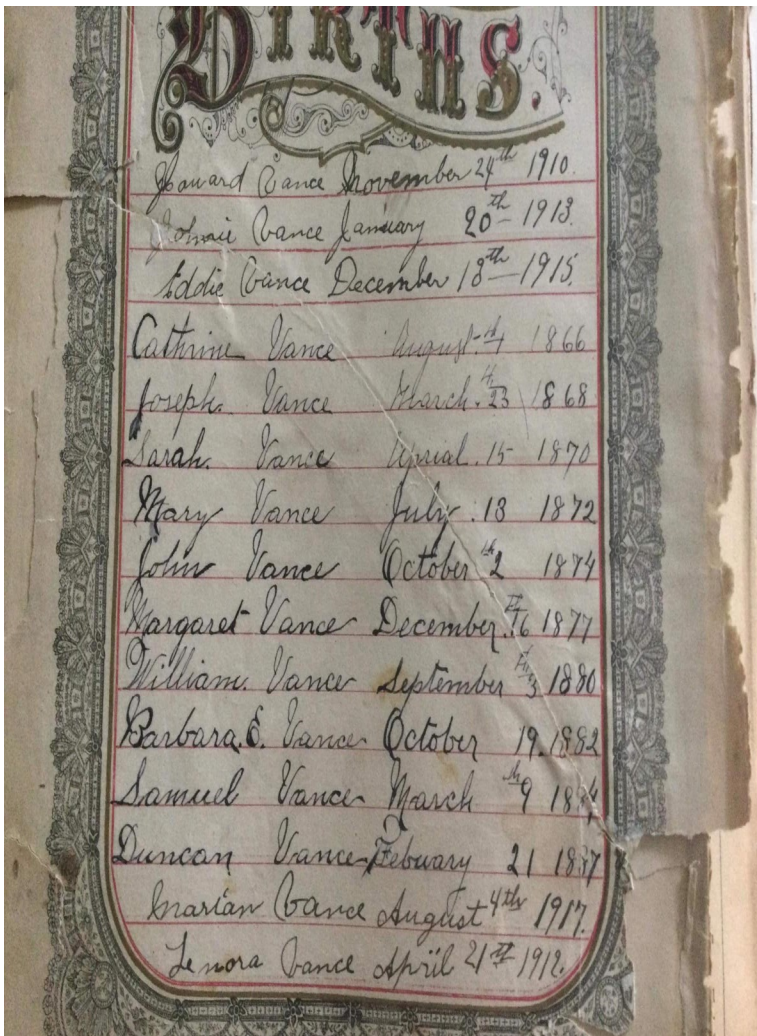 BIRTHS.
Howard Vance November 24th 1910.
Johnie Vance January 20th 1913.
Eddie Vance December 18th 1915.
Cathrine Vance August. 1866
Joseph. Vance March. 23 1868
Sarah. Vance Aprial. 15 1870
Mary Vance July. 13 1872
John Vance October th 2 1874
Margaret Vance December. 16 1877
William. Vance September 3 1880
Barbara. E. Vance October 19. 1882
Samuel Vance March th 9 1884
Duncan Vance Febuary 21 1887
Marian Vance August 4th 1917.
Lenora Vance April 21st 1912.